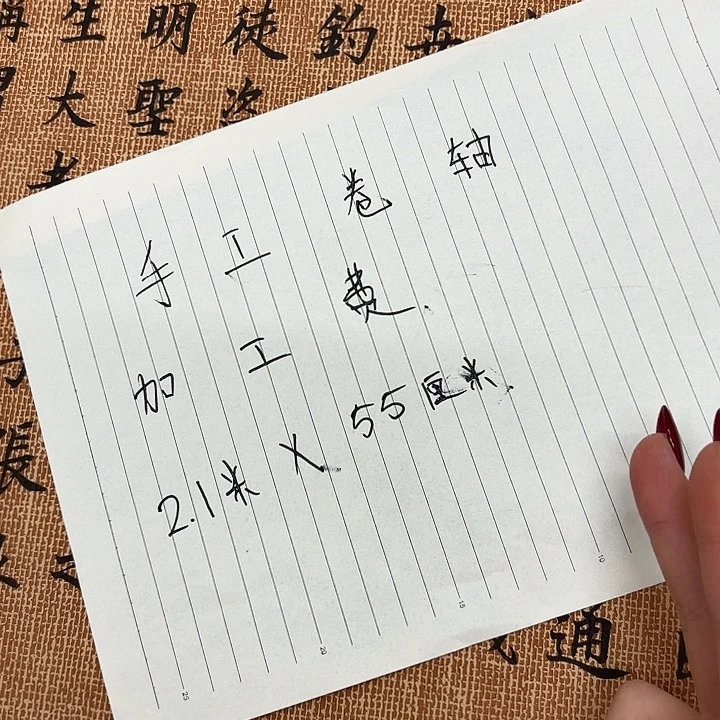 稱生明徒釣
大聖次
手工卷轴
加工费.
2.1米 X 55厘米.
張
通
25
20
15
10